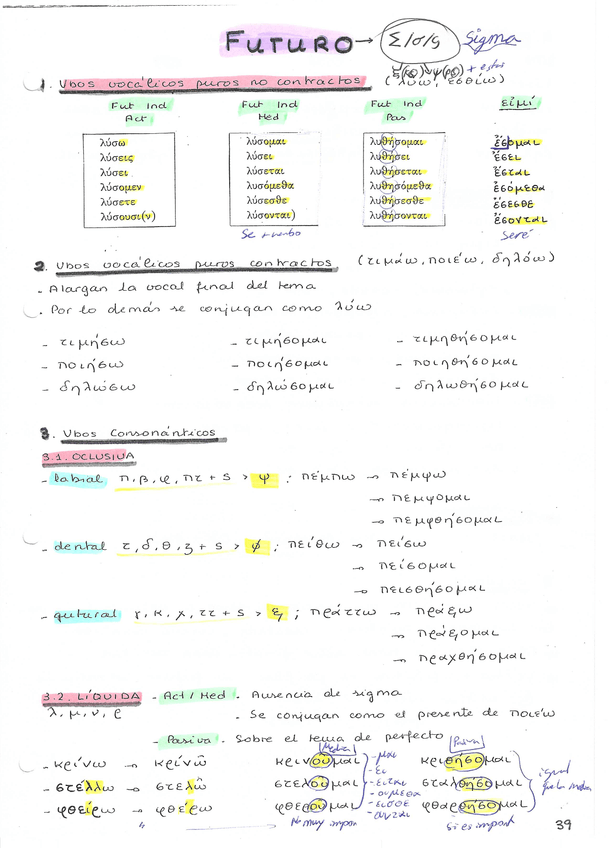 FUTURO → Σ/σ/ς Sigma
1. Vbos vocálicos puros no contractos (λύω, ἐσθίω)
Fut Ind Act Fut Ind Med Fut Ind Pas εἰμί
λύσω λύσομαι λυθήσομαι ἔσομαι
λύσεις λύσει λυθήσει ἔσει
λύσει λύσεται λυθήσεται ἔσται
λύσομεν λυσόμεθα λυθησόμεθα ἐσόμεθα
λύσετε λύσεσθε λυθήσεσθε ἔσεσθε
λύσουσι(ν) λύσονται) λυθήσονται ἔσονται
Se + verbo seré
2. Vbos vocálicos puros contractos (τιμάω, ποιέω, δηλόω)
- Alargan la vocal final del tema
- Por lo demás se conjugan como λύω
- τιμήσω - τιμήσομαι - τιμηθήσομαι
- ποιήσω - ποιήσομαι - ποιηθήσομαι
- δηλώσω - δηλώσομαι - δηλωθήσομαι
3. Vbos Consonánticos
3.1. OCLUSIVA
- labial π, β, φ, πτ + s > ψ ; πέμπω → πέμψω
→ πέμψομαι
→ πεμφθήσομαι
- dental τ, δ, θ, ζ + s > φ ; πείθω → πείσω
→ πείσομαι
→ πεισθήσομαι
- gutural γ, κ, χ, ττ + s > ξ ; πράττω → πράξω
→ πράξομαι
→ πραχθήσομαι
3.2. LÍQUIDA - Act/Med . Ausencia de sigma
λ, μ, ν, ρ . Se conjugan como el presente de ποιέω
- Pasiva . Sobre el tema de perfecto
Media Pasiva
- κρίνω → κρίνῶ κρινούμαι - μαι κριθήσομαι
- στέλλω → στελῶ στελούμαι - ει - ειται σταλθήσομαι igual que la media
- φθείρω → φθέρω φθερούμαι - ουμεθα - εισθε - ουνται φθαρθήσομαι
No muy import Si es import 39